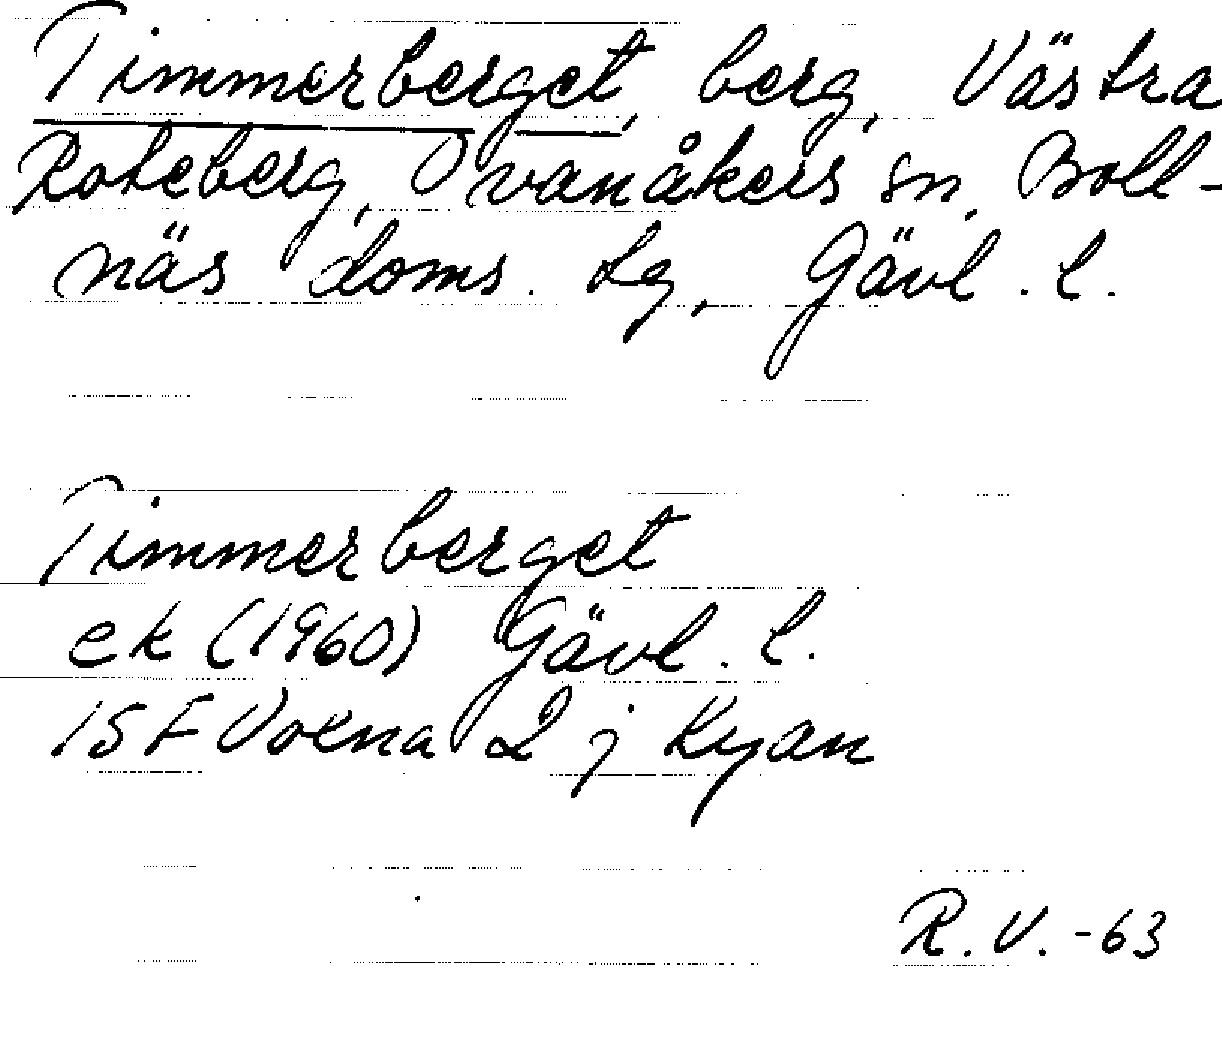 Timmerberget, berg, Västra
Roteberg, Ovanåkers sn, Boll-
näs doms. tg, Gävl. l.
Timmerberget
ek (1960) Gävl. l.
15F Voxna 2 j Kyan
R.V.-63